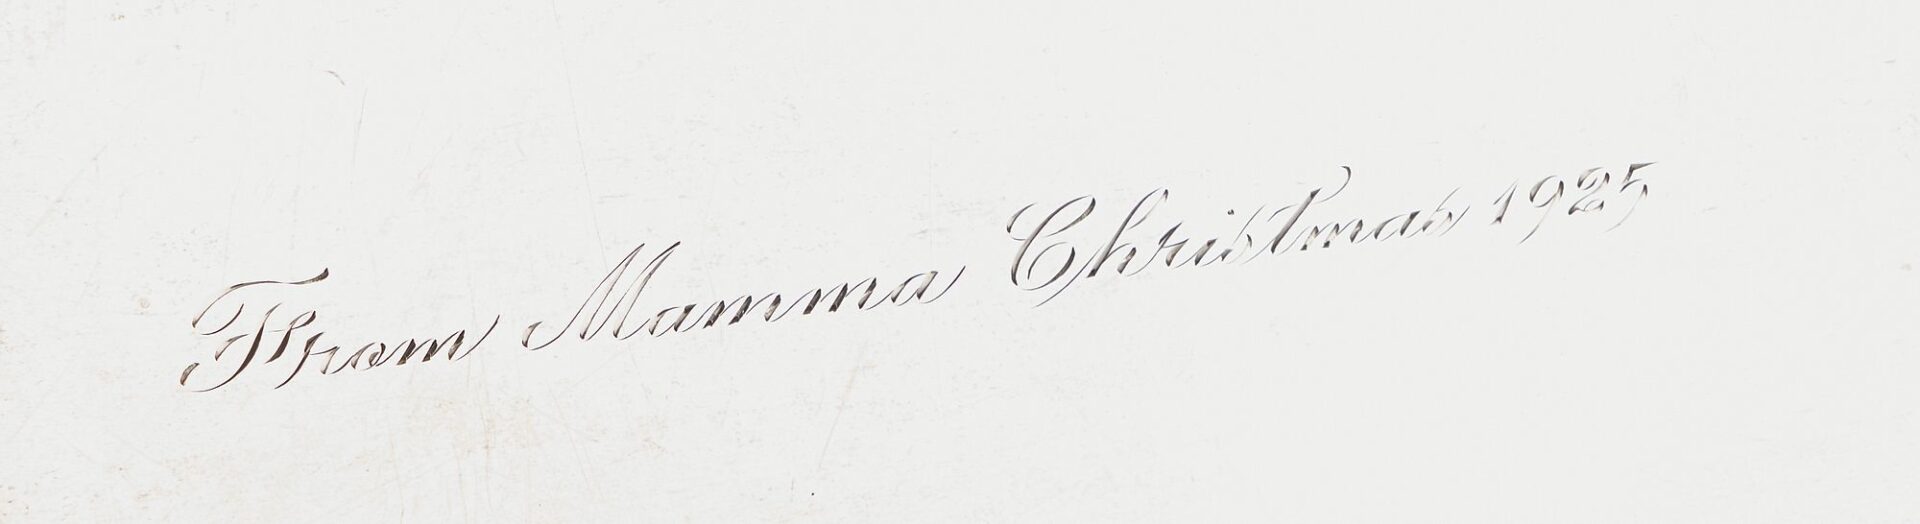 From Mamma Christmas 1925